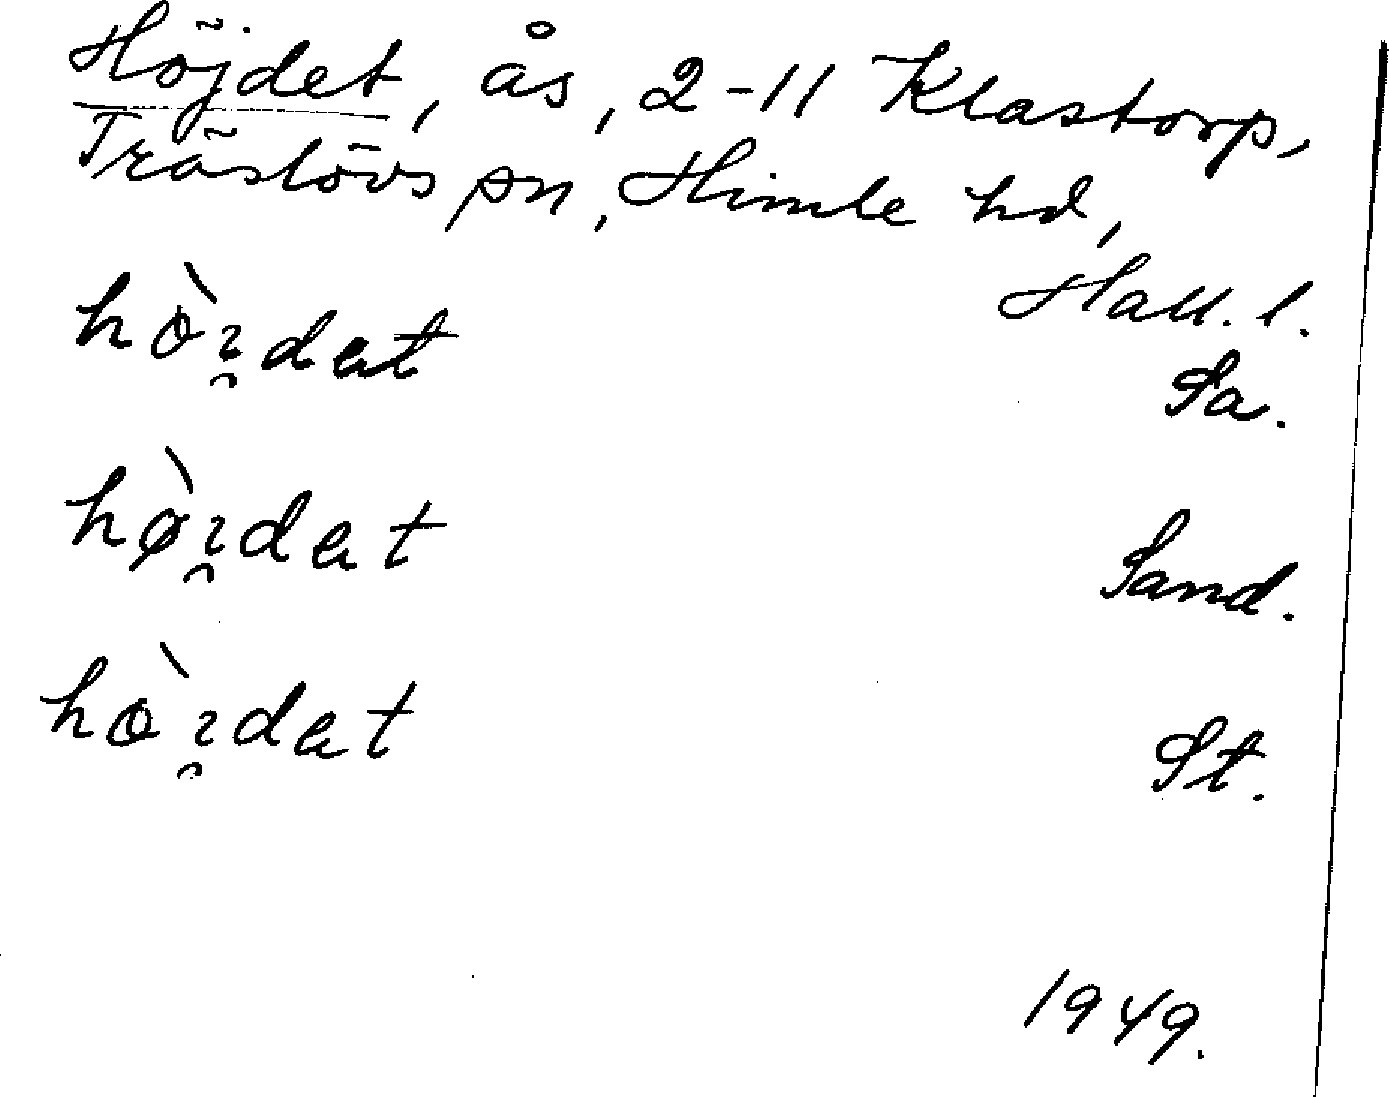 Höjdet, ås, 2-11 Klastorp,
Träslövs sn, Himle hd,
Hall. l.
hò̀ı̯dat Sa.
hø̀ı̯dat Sand.
hòı̯dat St.
1949.